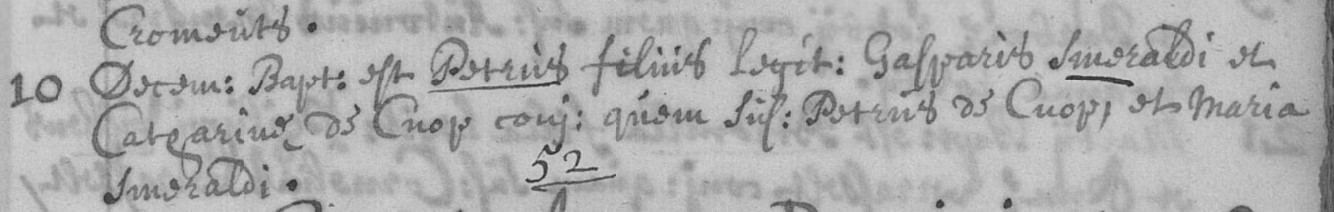 Cromeúts.
10 Decem: Bapt: est Petrús filiús legit: Gasparis Smeraldi et
Catharinę de Cnop conj: qúem súsc: Petrús de Cnop, et Maria
Smeraldi.
52